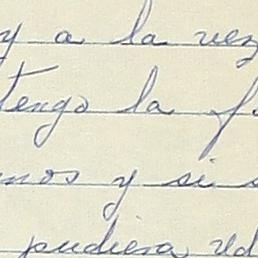 y a la vez
tengo la
y si
pudiera Vd